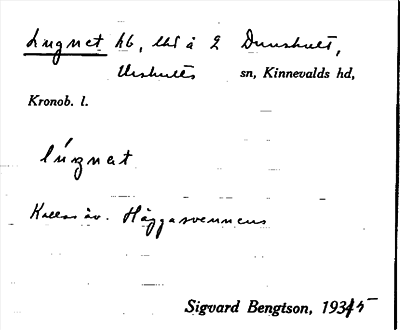 Lugnet hb, lht å 2 Dunshult,
Urshults sn, Kinnevalds hd,
Kronob. l.
lúgnet
Kallas äv. Häggasvennens
Sigvard Bengtson, 1935